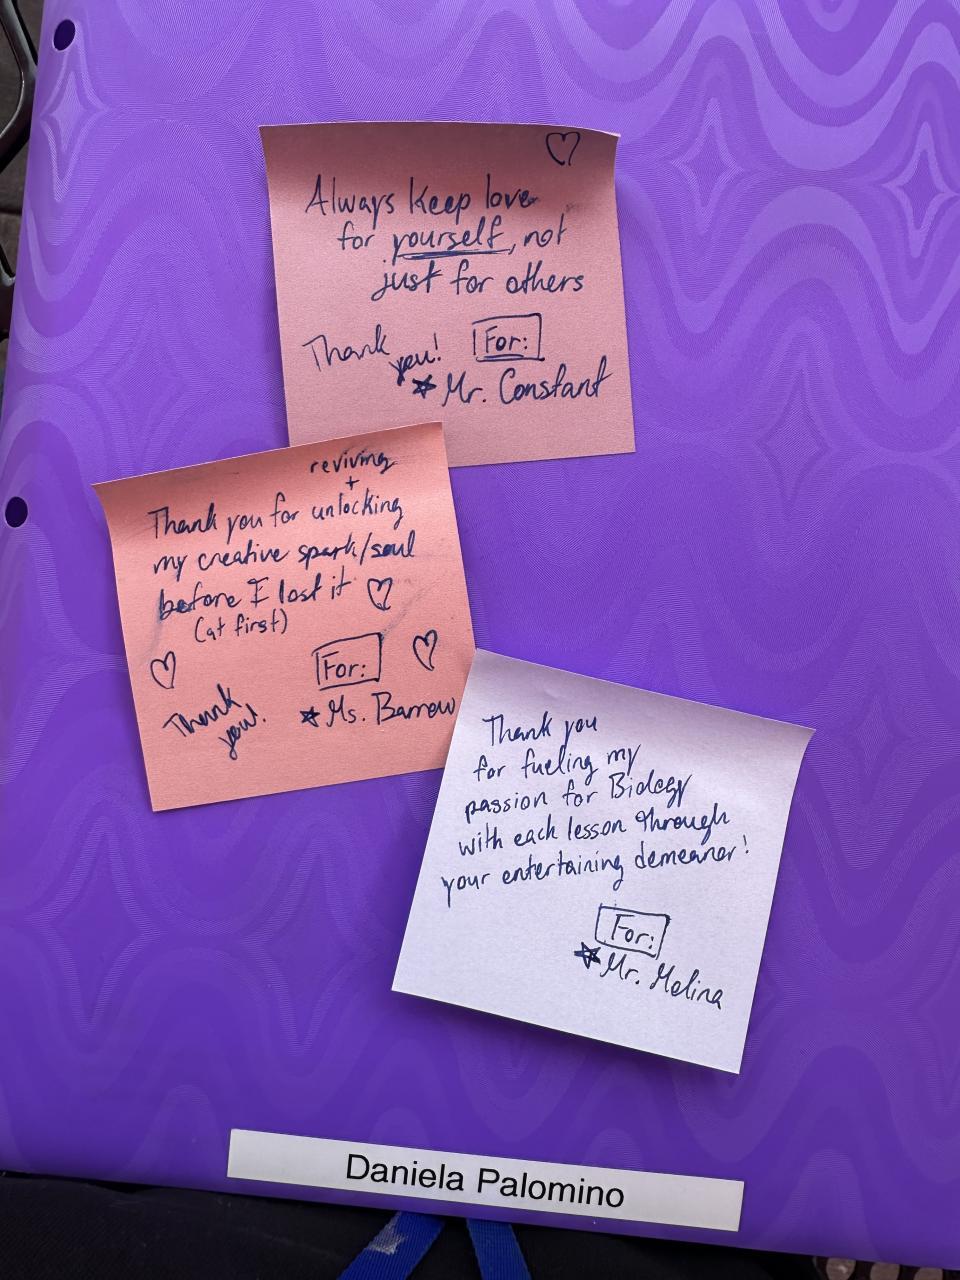 Always Keep love
for yourself, not
just for others
Thank you!
For:
Mr. Constant
reviving
+
Thank you for unlocking
my creative spark/soul
before I lost it
(at first)
For:
Thank you!
Ms. Barrow
Thank you
for fueling my
passion for Biology
with each lesson through
your entertaining demeanor!
For:
Mr. Molina
Daniela Palomino